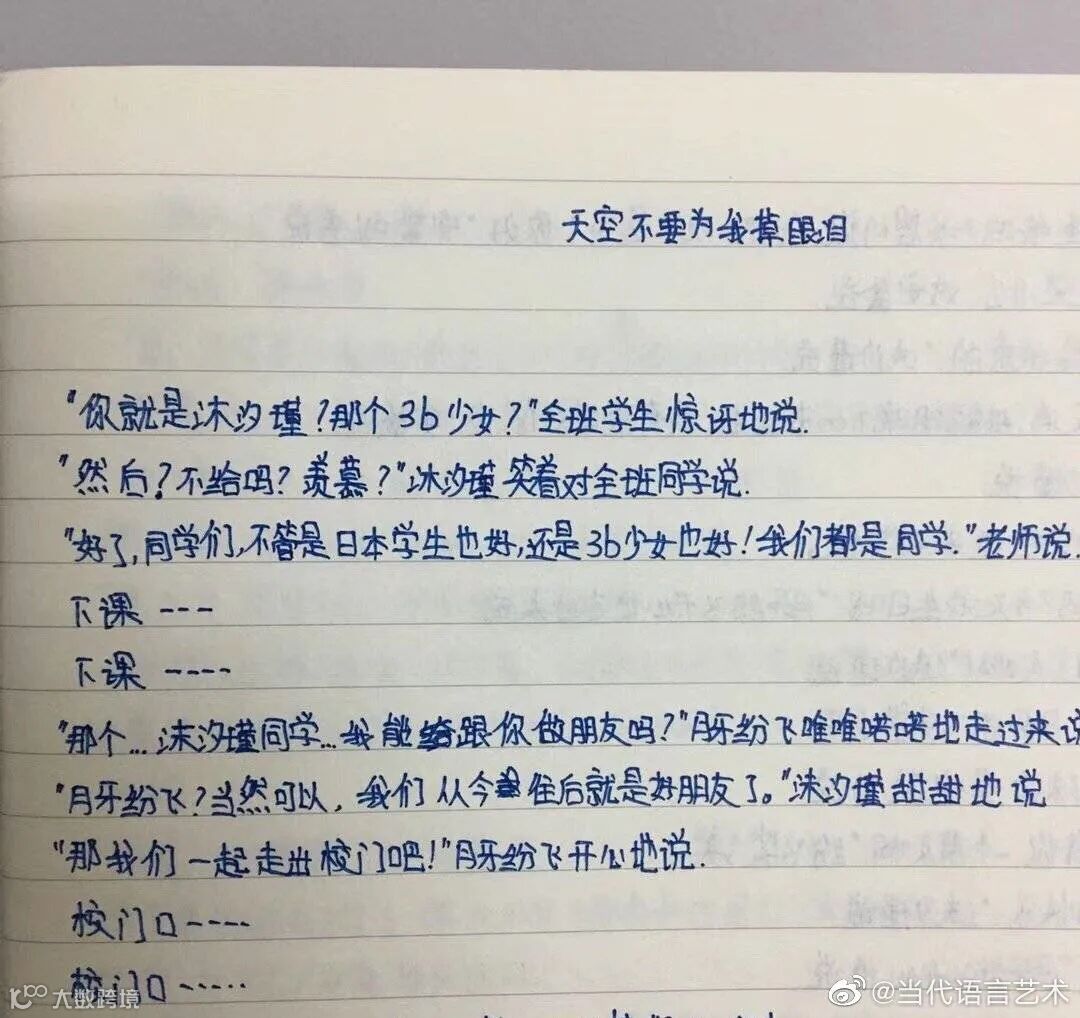 天空不要为我草眼泪
"你就是沐汐瑾?那个3b少女?"全班学生惊讶地说.
"然后?不给吗?羡慕?"沐汐瑾笑着对全班同学说.
"好了,同学们,不管是日本学生也好,还是3b少女也好!我们都是同学."老师说.
下课 ---
下课 ----
"那个...沫汐瑾同学...我能跟你做朋友吗?"月牙纷飞唯唯喏喏地走过来说
"月牙纷飞?当然可以,我们从今住后就是好朋友了。"沫汐瑾甜甜地说
"那我们一起走出校门吧!"月牙纷飞开心地说.
校门口----
校门口-----
大数跨境
@当代语言艺术